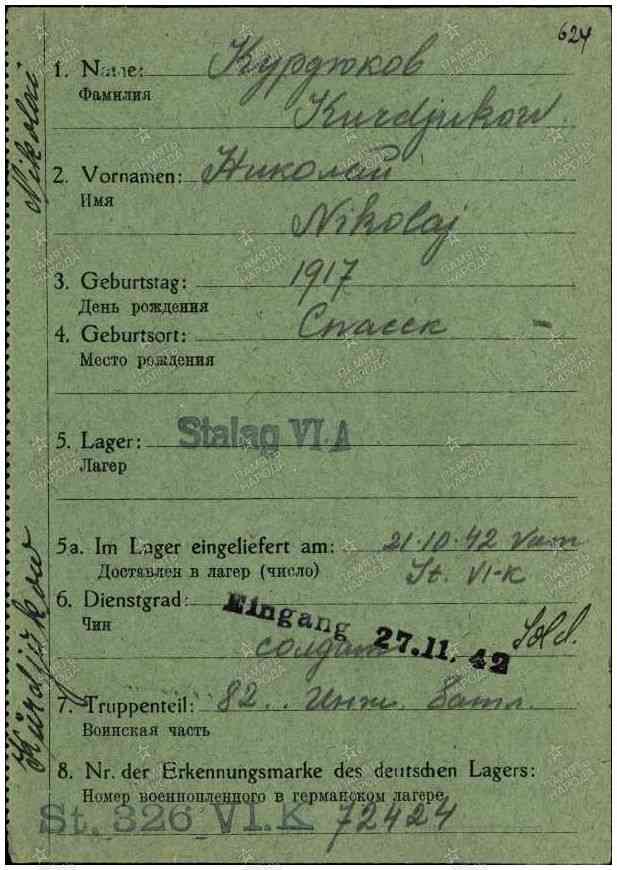 624
1. Name:
Курдюков
Фамилия
Kurdjukow.
2. Vornamen: Николай
Имя
Nikolaj
3. Geburtstag: 1917
День рождения
4. Geburtsort: Спасск –
Место рождения
5. Lager: Stalag VI A
Лагер
5a. Im Lager eingeliefert am: 21.10.42 vom
Доставлен в лагер (число) St. VI-K
6. Dienstgrad: Eingang 27.11.42
Чин
солдат Sold.
7. Truppenteil: 82.. Инж. Батл.
Воинская часть
8. Nr. der Erkennungsmarke des deutschen Lagers:
Номер военнопленного в германском лагере
St. 326 VI. K 72424
Kürdjukow Nikolai
ПАМЯТЬ НАРОДА